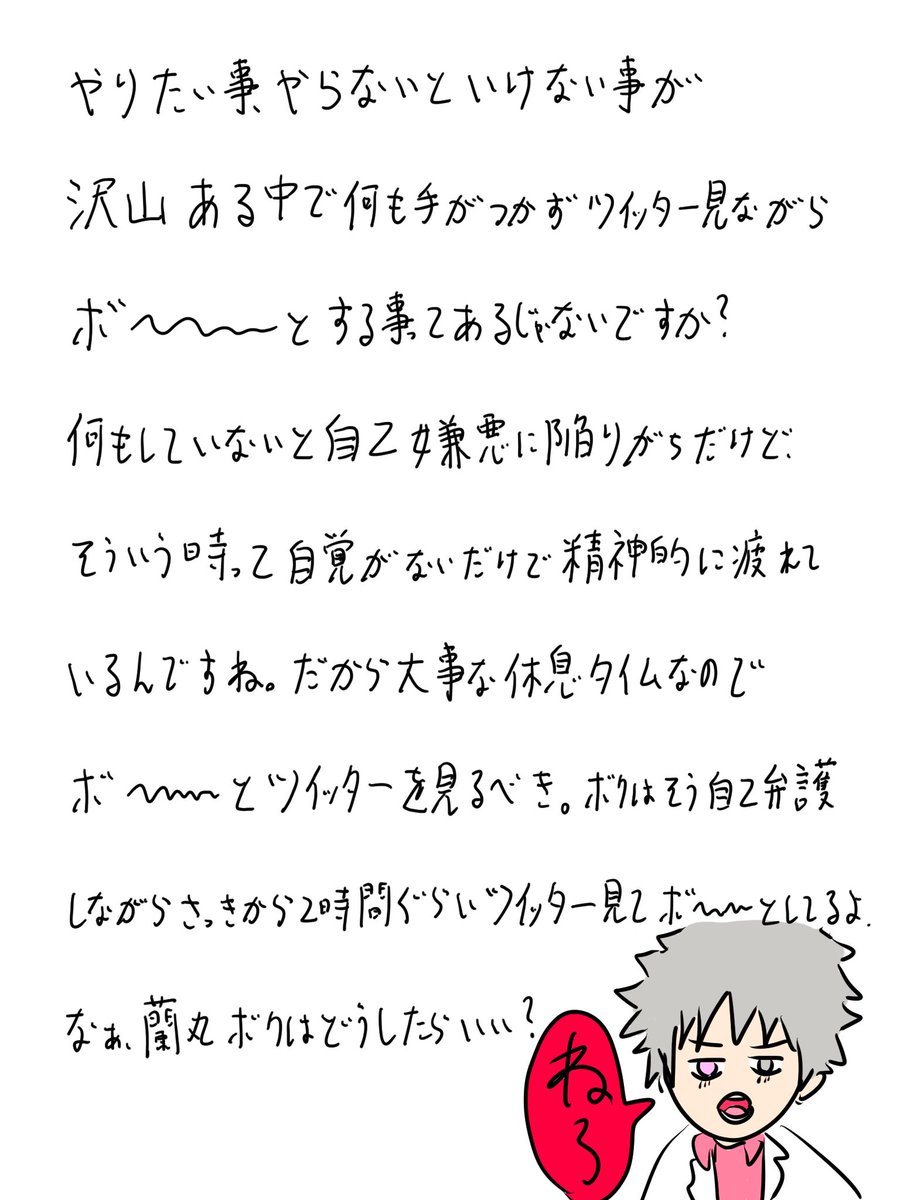 やりたい事、やらないといけない事が
沢山ある中で何も手がつかずツイッター見ながら
ボ〜〜〜とする事ってあるじゃないですか?
何もしていないと自己嫌悪に陥りがちだけど、
そういう時って自覚がないだけで精神的に疲れて
いるんですね。だから大事な休息タイムなので
ボ〜〜〜とツイッターを見るべき。ボクはそう自己弁護
しながらさっきから2時間ぐらいツイッター見てボ〜〜〜としてるよ.
なぁ、蘭丸ボクはどうしたらいい?
ねろ